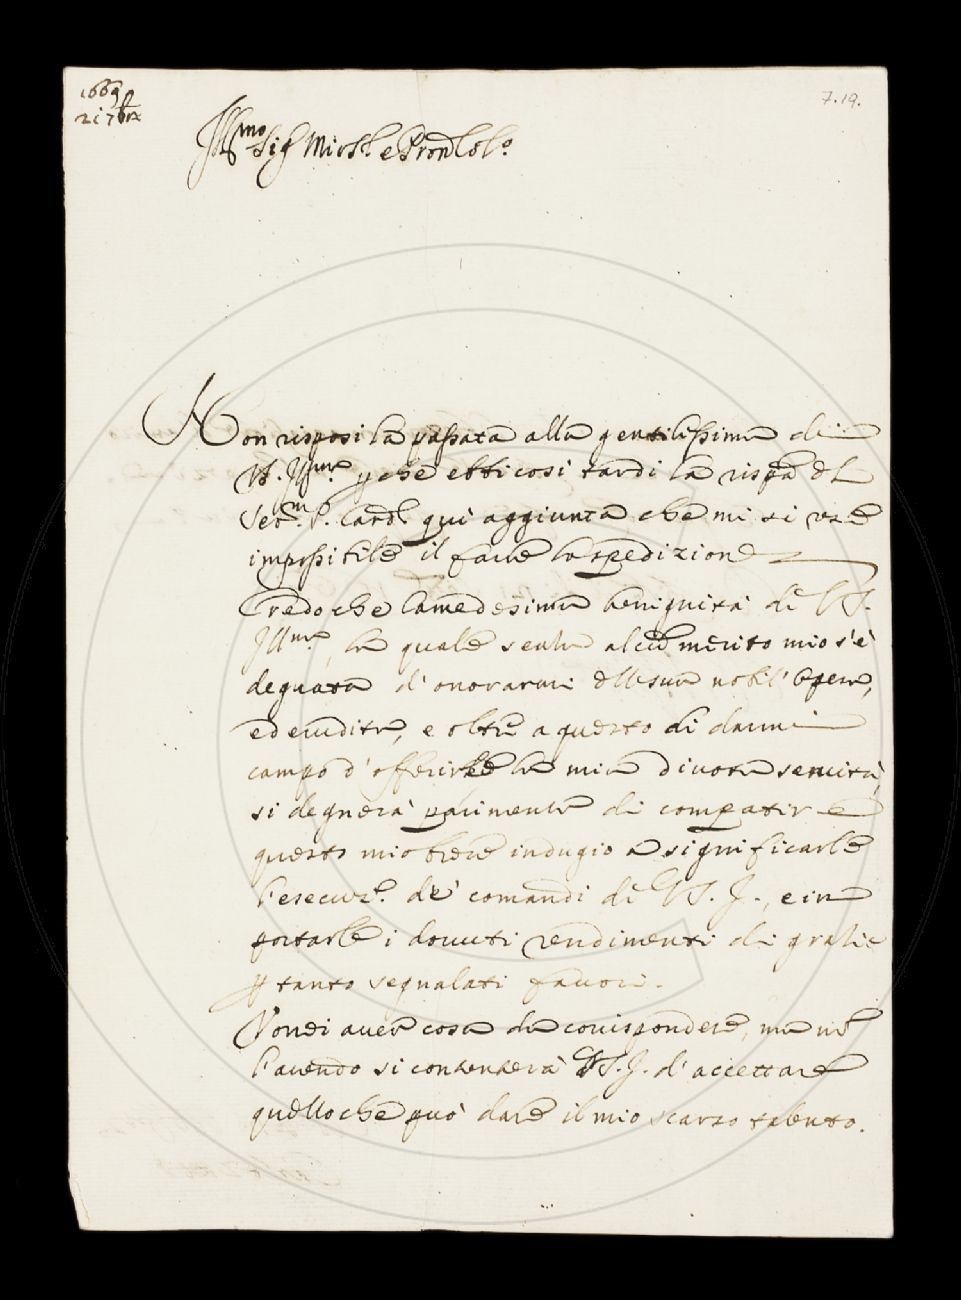 1669
21 7brx
7.19.
Ill.mo Sig.r mio Sig.r e Pron Col.o
Non risposi la passata alla gentilissima di
V.S. Ill.ma p che ebbi così tardi la rispa del
Ser.mo P. Card.l qui aggiunta che mi si rese
impossibile il farne la spedizione
Credo che la medesima benignità di V.S.
Ill.ma, la quale senza alcun merito mio s'è
degnata d'onorarmi della sua nobil' opera,
ed erudita, e oltre a questo di darmi
campo d'offerirle la mia divota servitù,
si degnerà parimente di compatire
questo mio breve indugio a significarle
l'esecuz.e de' comandi di V.S. I., e in
portarle i dovuti rendimenti di grazie
p tanto segnalati favori.
Vorrei aver cosa da corrispondere, ma nō
l'avendo si contenterà V.S. I. d'accettare
quello che può dare il mio scarso talento.